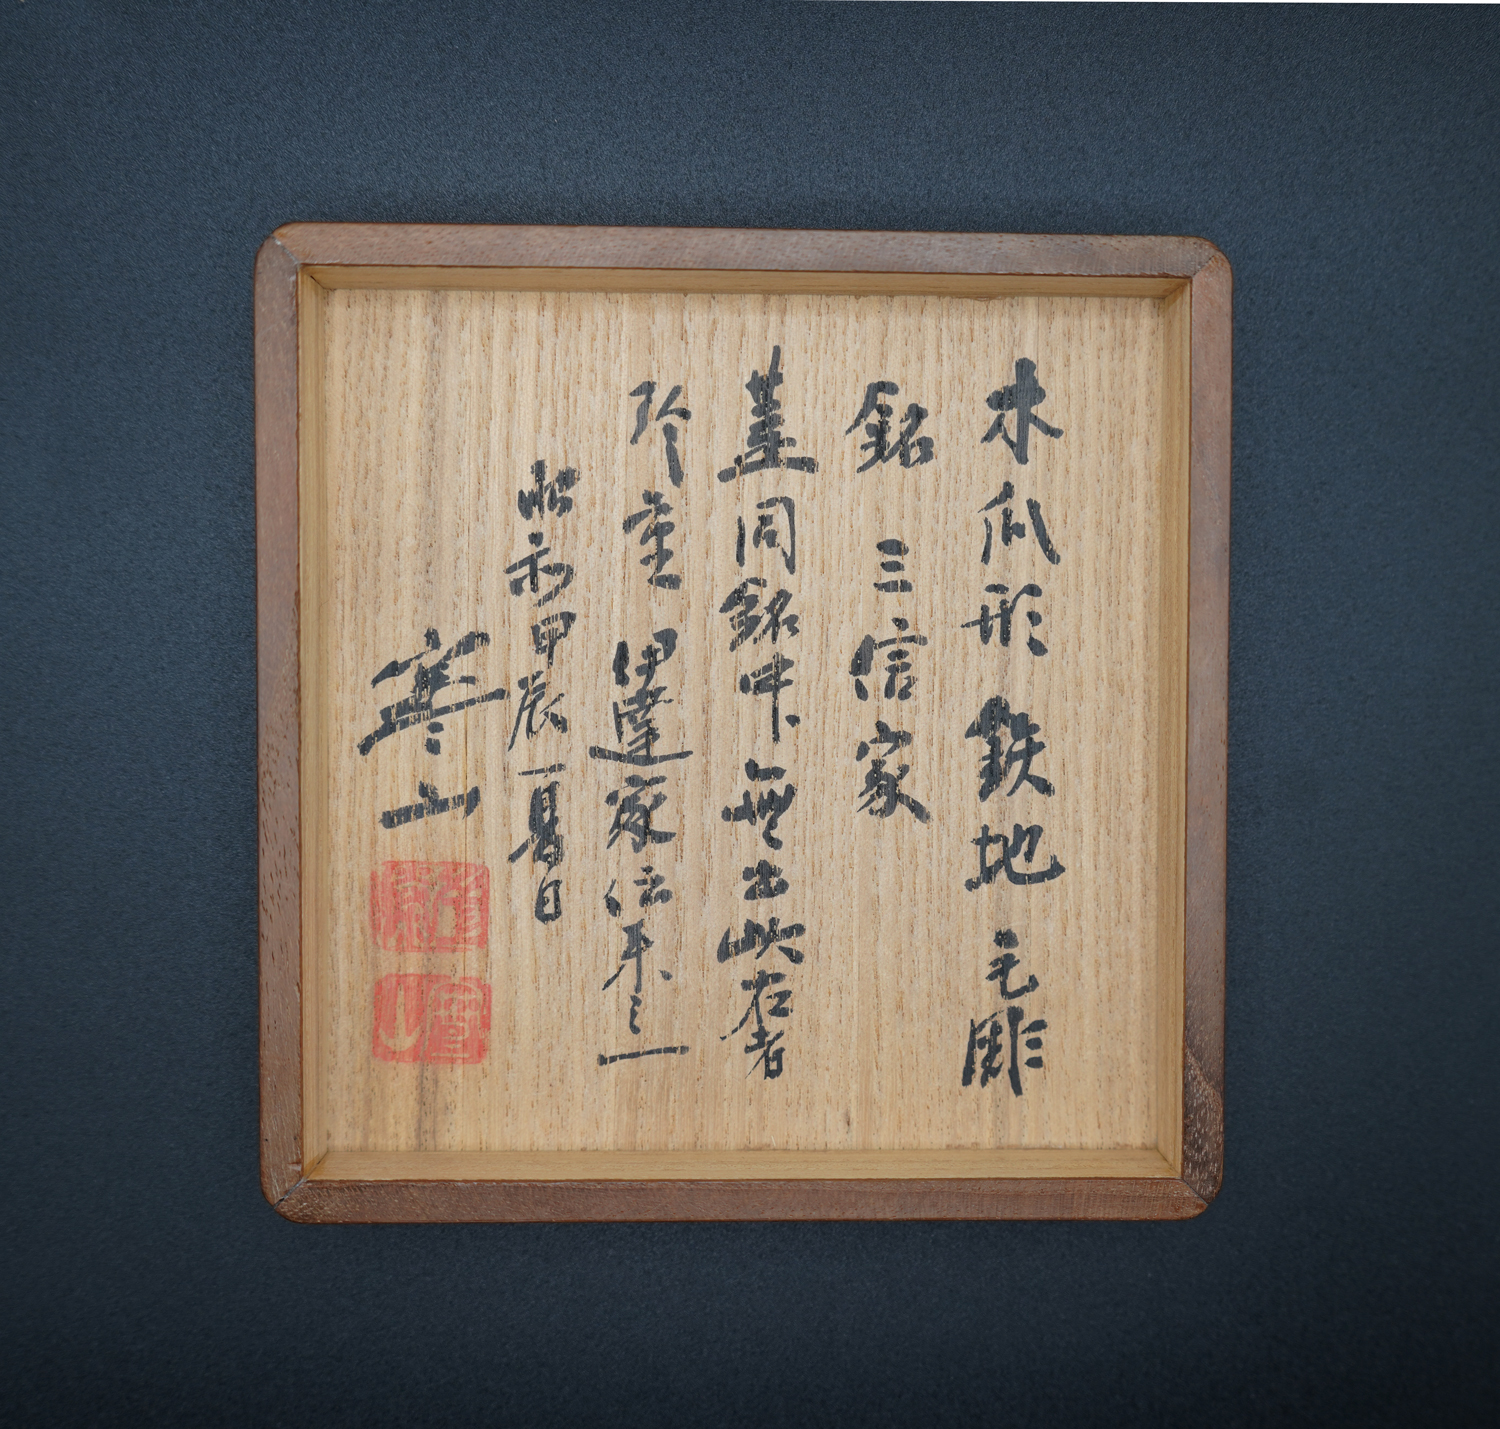 木瓜形 鉄地 毛彫
銘 三信家
蓋同銘中無出此右者
珍重 伊達家伝来之一
昭和甲辰夏日
寒山
寒山